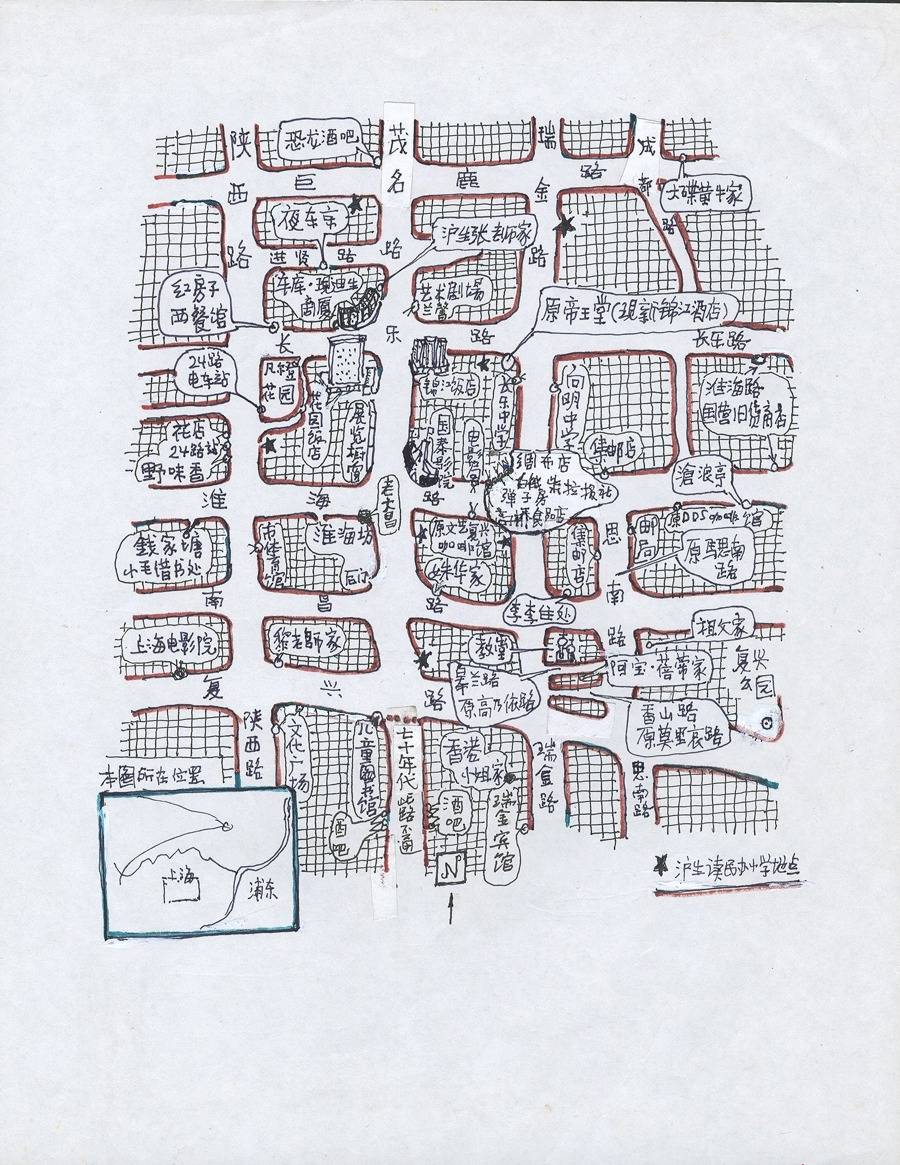 陕西路
恐龙酒吧
茂名路
瑞金路
成都路
巨鹿路
大碟黄牛家
夜东京
沪生张老师家
进贤路
红房子
西餐馆
车库·现迪生
商厦
艺术剧场
兰馨
原帝王堂(现新锦江酒店)
长乐路
长乐路
24路
电车站
凡登
花园
花园饭店
展览橱窗
锦江饭店
国泰影院
电影院
长乐中学
向明中学
集邮店
淮海路
国营旧货商店
花店
24路站
野味香
绸布店
弹子房
沧浪亭
淮海路
老大昌
钱家塘
小毛借书处
市体育馆
淮海坊
后门
原文艺复兴
咖啡馆
姝华家
集邮店
思南路
邮局
原DDS咖啡馆
原马思南
路
南昌路
李李住处
上海电影院
黎老师家
教堂
祖父家
阿宝·蓓蒂家
复兴公园
皋兰路
原高乃依路
香山路
原莫里哀路
复兴路
陕西路
文化广场
儿童图书馆
七十年代此路不通
香港
小姐家
瑞金宾馆
瑞金路
思南路
酒吧
酒吧
本图所在位置
上海
浦东
N
沪生读民办小学地点